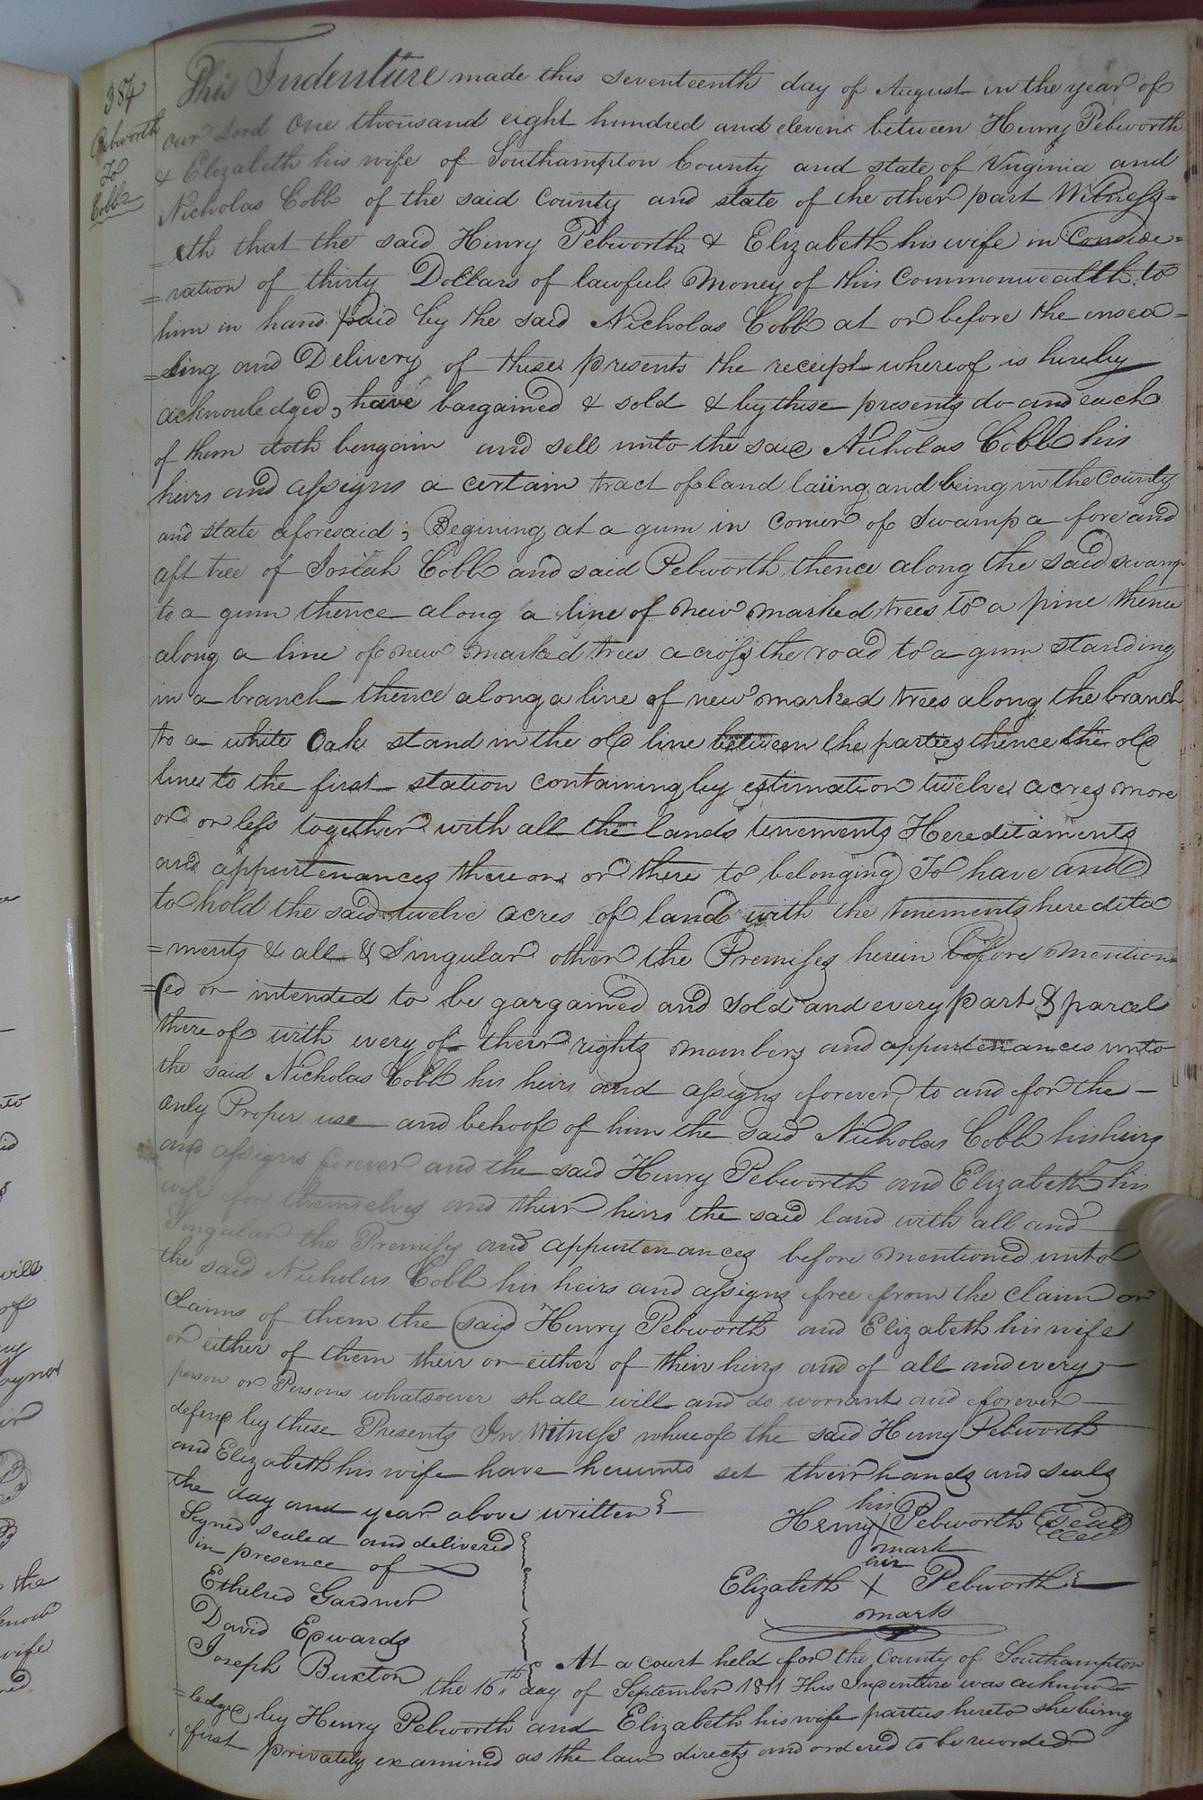 384
Pebworth
To
Cobb
This Indenture made this seventeenth day of August in the year of
our Lord One thousand eight hundred and eleven between Henry Pebworth
& Elizabeth his wife of Southampton County and state of Virginia and
Nicholas Cobb of the said County and state of the other part Witness=
=eth that the said Henry Pebworth & Elizabeth his wife in Conside=
=ration of thirty Dollars of lawful money of this Commonwealth to
him in hand paid by the said Nicholas Cobb at or before the ensea=
=ling and Delivery of these presents the receipt whereof is hereby
acknowledged, have bargained & sold & by these presents do and each
of them doth bengain and sell unto the said Nicholas Cobb his
heirs and assigns a certain tract of land laiing and being in the County
and state aforesaid; Begining at a gum in corner of Swamp a fore and
aft tree of Josiah Cobb and said Pebworth thence along the said swamp
to a gum thence along a line of new marked trees to a pine thence
along a line of new marked trees across the road to a gum standing
in a branch thence along a line of new marked trees along the branch
to a white Oak stand in the old line between the parties thence the old
line to the first station containing by estimation twelve acres more
or or less together with all the lands tenements Hereditaments
and appurtenances there on or there to belonging To have and
to hold the said twelve acres of land with the tenements heredita
=ments & all & Singular other the Premises herein before mention
=ed or intended to be gargained and Sold and every part & parcel
there of with every of their rights members and appurtenances unto
the said Nicholas Cobb his heirs and assigns forever to and for the
only Proper use and behoof of him the said Nicholas Cobb his heirs
and assigns forever and the said Henry Pebworth and Elizabeth his
wife for themselves and their heirs the said land with all and
Singular the Premises and appurtenances before mentioned unto
the said Nicholas Cobb his heirs and assigns free from the claim or
claims of them the said Henry Pebworth and Elizabeth his wife
or either of them their or either of their heirs and of all and every
person or Persons whatsoever shall will and do warrant and forever
defend by these Presents In Witness whereof the said Henry Pebworth
and Elizabeth his wife have hereunto set their hands and seals
the day and year above written
Signed sealed and delivered
in presence of
Ethelred Gardner
David Edwards
Joseph Buxton
his
Henry X Pebworth Seal
mark
her
Elizabeth X Pebworth
mark
At a court held for the County of Southampton
the 16th day of September 1811 This Indenture was acknow=
=ledged by Henry Pebworth and Elizabeth his wife parties hereto she being
first privately examined as the law directs and ordered to be recorded